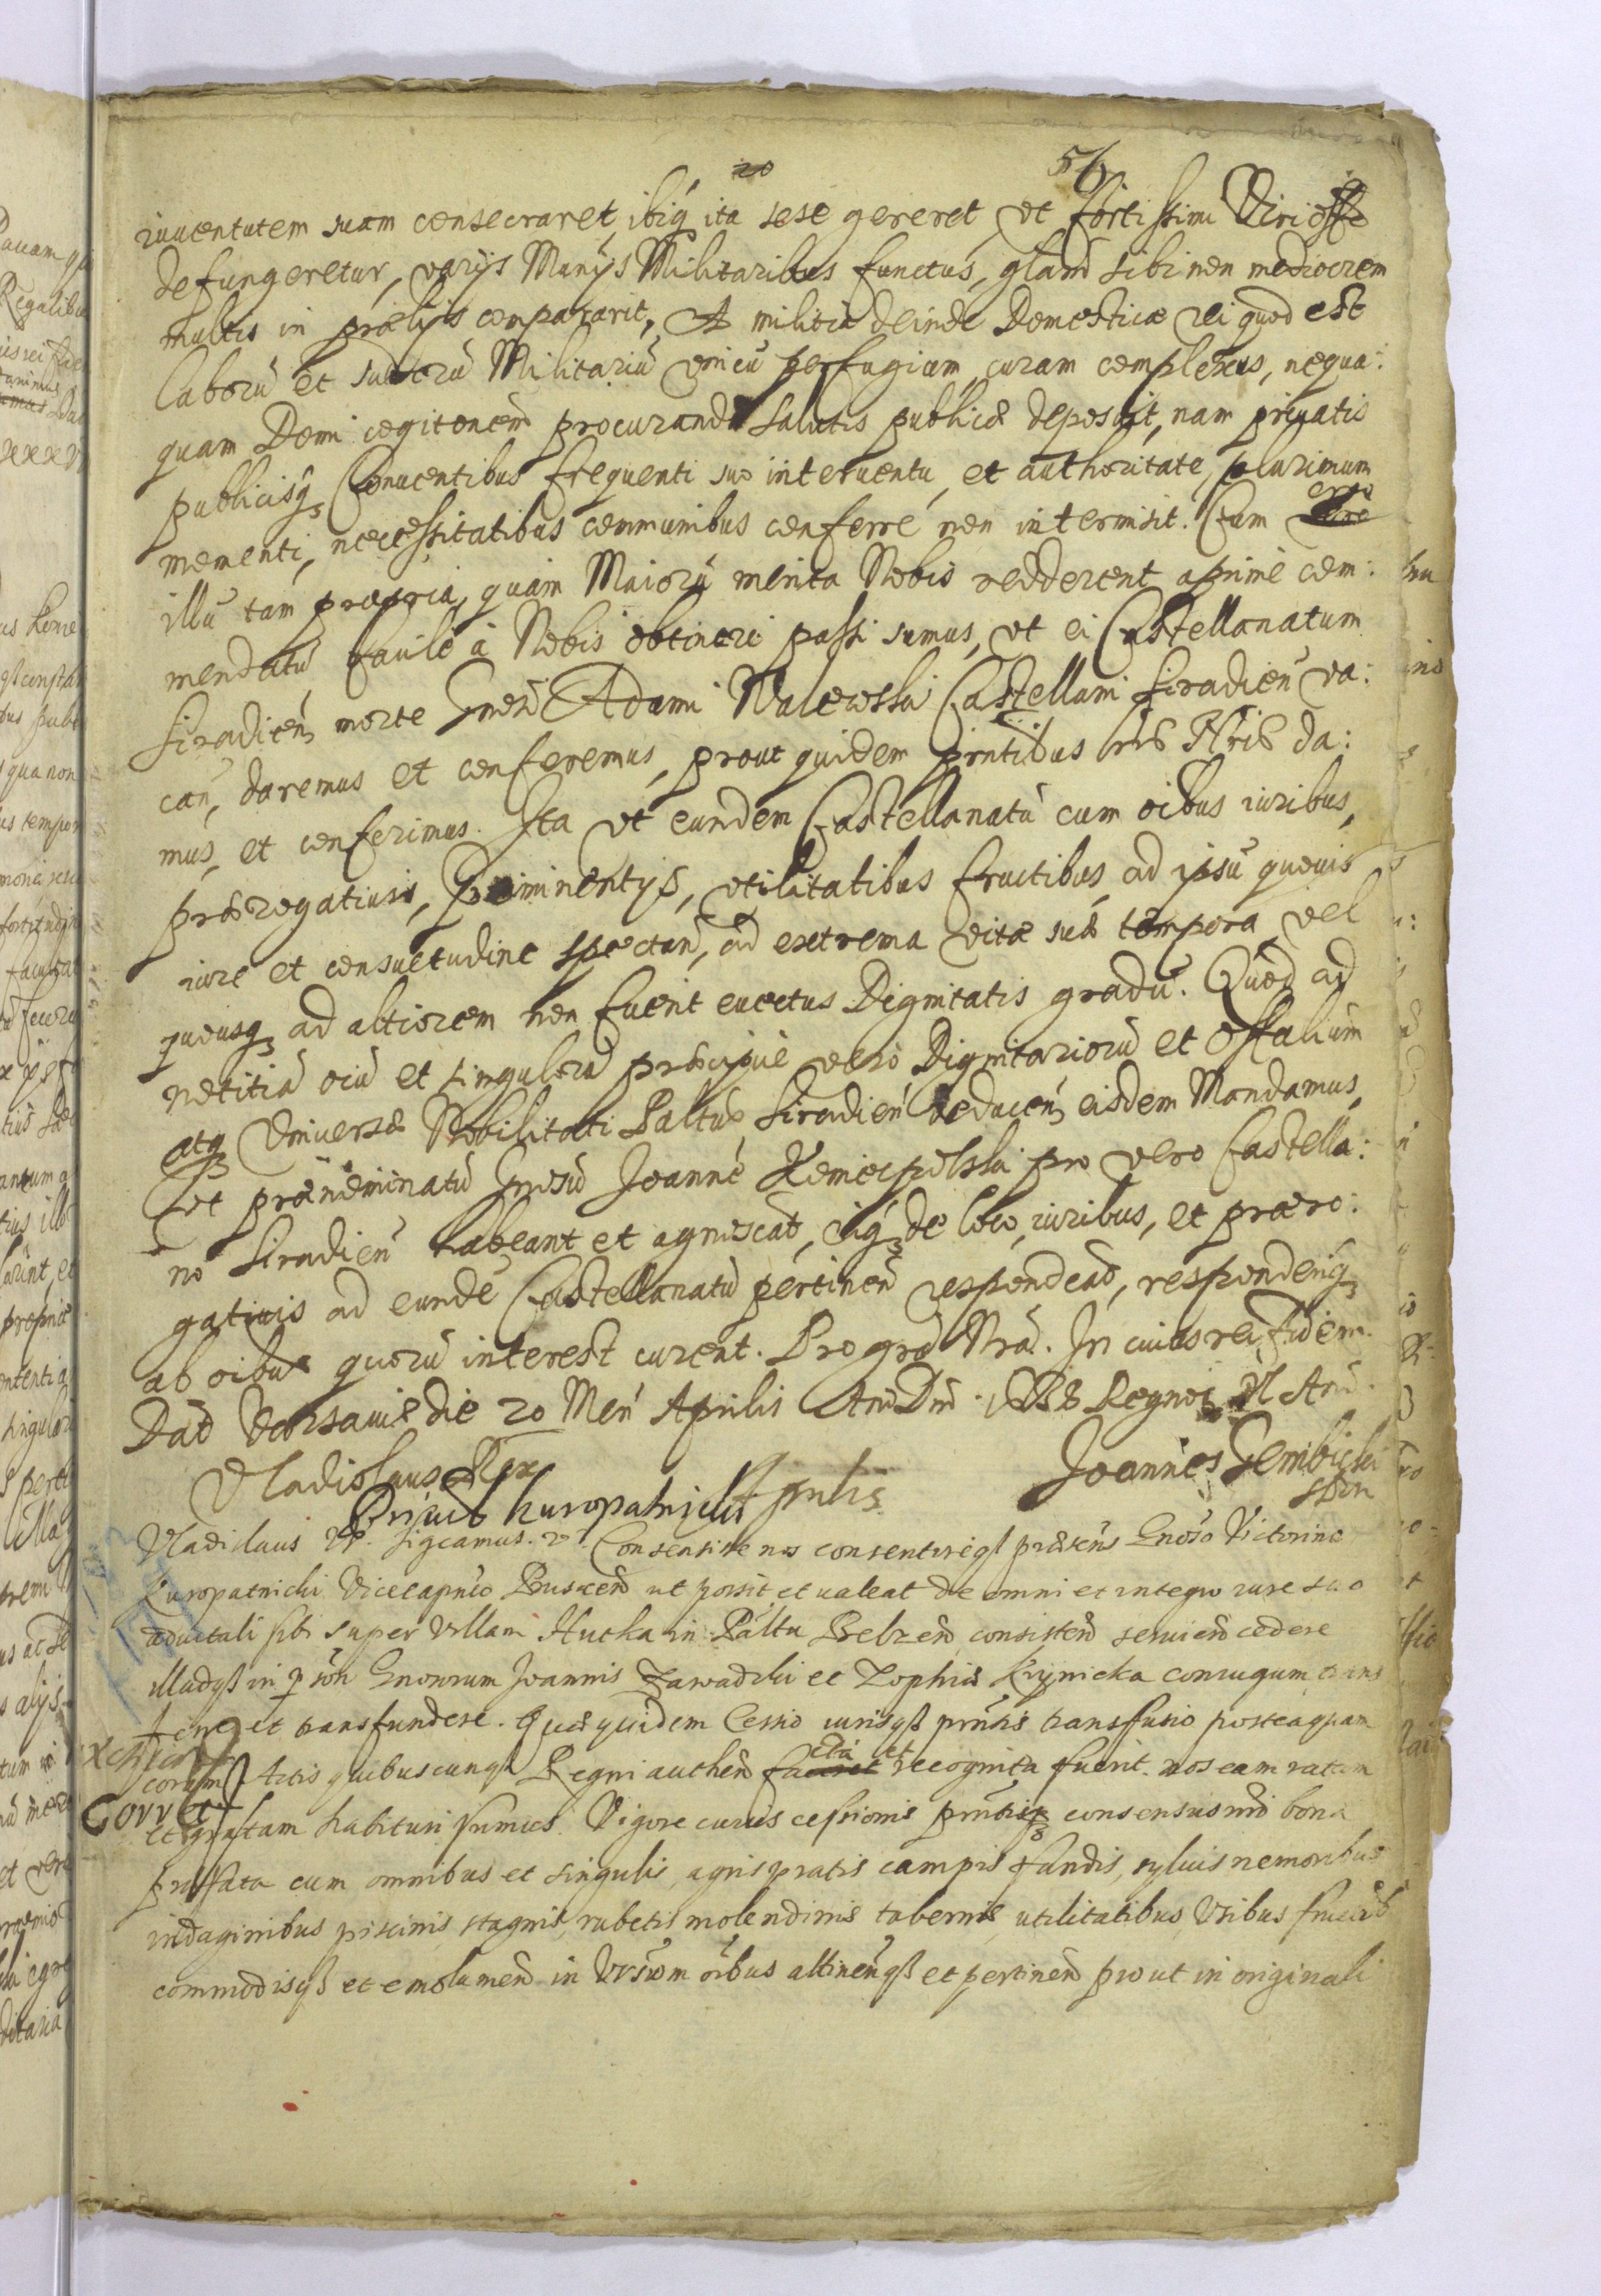 20 56
iuuentutem suam consecraret ibiq ita sese gereret, vt fortissimi Viri offo
defungeretur, varijs Munijs Militaribus functus, glam sibi non mediocrem
multis in prœlijs compararit, A militia deinde Domesticæ rei quod est
laborũ et sudorũ Militariũ vnicũ perfugium, curam complexus, nequa:
quam Domi cogitonem procurandæ Salutis publicæ deposuit, nam priuatis
publicisq Conuentibus frequenti suo interuentu, et authoritate, plurimum
momenti, necessitatibus communibus conferre non intermisit. Cum ergo
illũ tam propria, quam Maiorũ merita Nobis redderent apprime com:
mendatũ facile à Nobis obtineri passi sumus, vt ei Castellanatum
Siradien, morte Gnosi Adami Walewski Castellani Siradien va:
can, daremus et conferemus, prout quidem pntibus lris Nris da:
mus, et conferimus. Ita vt eundem Castellanatũ cum oibus iuribus,
prærogatiuis, Præminentijs, vtilitatibus fructibus, ad ipsũ quouis
iure et consuetudine spectan, ad extrema vitæ suæ tempora vel
quousq ad altiorem non fuerit euectus Dignitatis gradũ. Quod ad
notitiã oiũ et singulorũ præcipuè vero Dignitariorũ et Offalium
atq Vniversæ Nobilitati Palttus Siradien deducen, eisdem Mandamus,
vt prænominatũ Gnosũ Joannẽ Koniecpolski pro vero Castella:
no Siradien habeant et agnoscat, eiq de loco, iuribus, et præro:
gatiuis ad eundẽ Castellanatũ pertinen respondeat, responderiq
ab oibus quorũ interest curent. Pro gra Nra. In cuius rei fidem.
Dat Varsauiæ die 20 Men Aprilis Ann Dni. Regnor Nr Ann.
Vladislaus Rex
Joannes Gembicki
Priuil Kuropatnicki Aprilis
Vladislaus Rex. Significamus. Consensisse nos consentireq præsens Gnoso Victorino
Kuropatnicki Vicecapneo Buscen ut possit et ualeat de omni et integro iure suo
aduitali sibi super Villam Hutka in Paltu Belzen consisten seruien cedere
illudq in pson Gnosorum Joannis Zawadzki et Zophiæ Krynicka coniugum trans
ferre et transfundere. Quæ quidem Cessio iurisq pntis transfusio posteaquam
coram Actis quibuscunq Regni authen facta et recognita fuerit. nos eam ratam
Corr
et gratam habituri sumus. Vigore cuius cessionis pntisq consensus nri bona
præfata cum omnibus et singulis, agris pratis campis fundis, syluis nemoribus
indaginibus piscinis, stagnis, rubetis, molendinis tabernis, utilitatibus, Vsibus fructib
commodisq et emolumen in Vrsum oibus attinenq et pertinen prout in originali